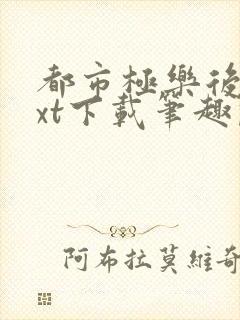 都市極樂後
xt下載筆趣
阿布拉莫維奇